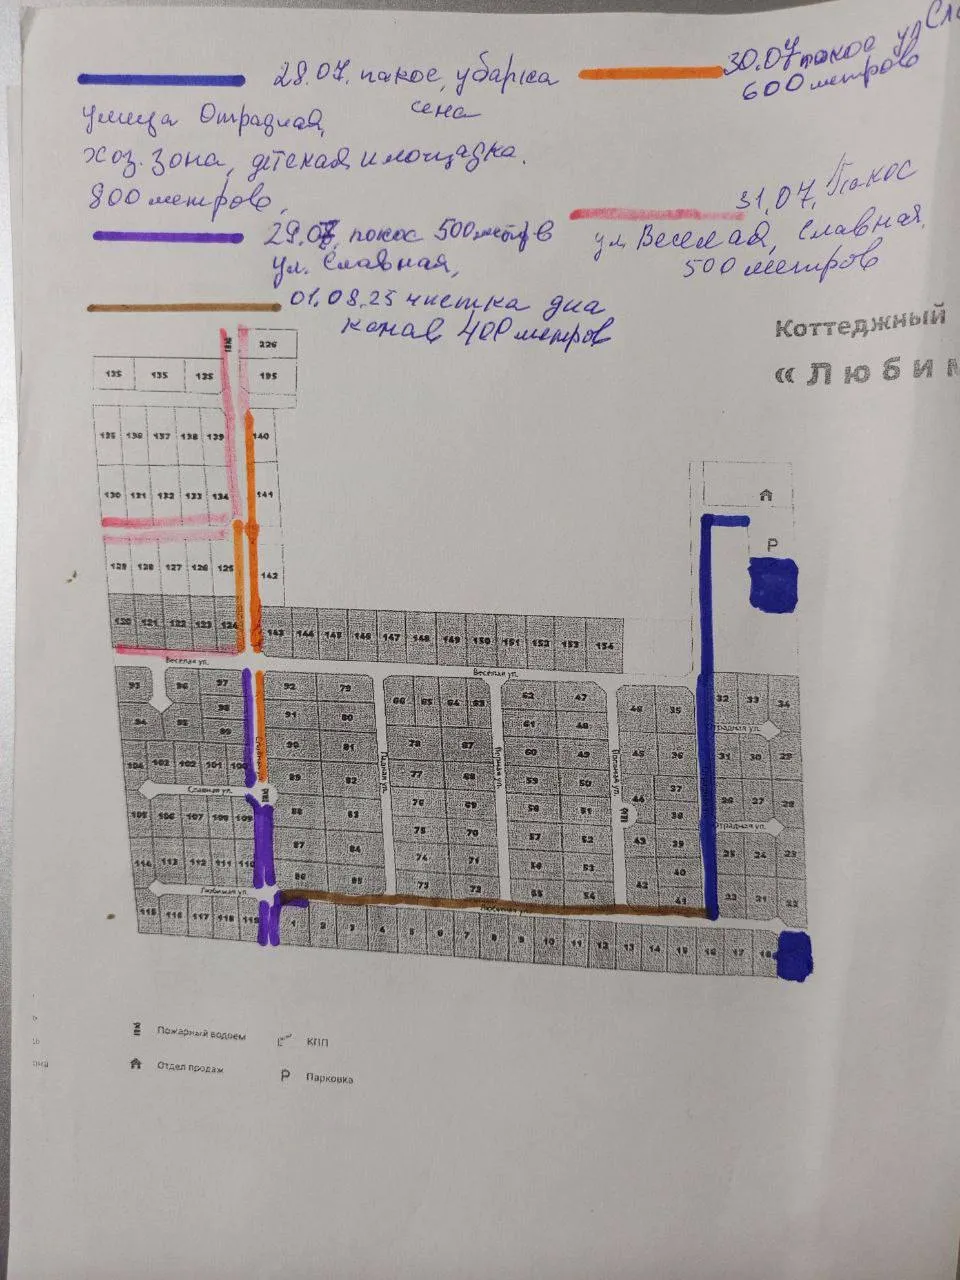 28.07. пакос, уборка
сена
улица Отрадная,
хоз. зона, детская площадка.
800 метров,
30.07 покос ул Сла
600 метров
29.07, покос 500 метров
ул. Славная,
31.07. Покос
ул. Веселая, Славная,
500 метров
01.08.25 чистка дна
канав 400 метров
Коттеджный
«Любим
226
135 135 125 195
135 136 137 138 139 140
130 131 132 133 134 141
129 128 127 126 125 142
120 121 122 123 124 143 144 145 146 147 148 149 150 151 152 153 154
P
Веселая ул.
Веселая ул.
93 96 97 92 79 66 65 64 63 62 47 46 35 32 33 34
94 95 98 91 80 61 48
99 90 81 78 67 60 49 45 36 31 30 29
Отрадная ул.
104 103 102 101 100 89 82 77 68 59 50 37
Славная ул.
Славная
Погожая ул.
105 106 107 108 109 88 83 76 69 58 51 44 38 26 27 28
Отрадная ул.
87 84 75 70 57 52 43 39 25 24 23
114 113 112 111 110 86 85 74 71 56 53 42 40
73 72 55 54 41 22 21 22
Любимая ул.
Любимая ул.
115 116 117 118 119 1 2 3 4 5 6 7 8 9 10 11 12 13 14 15 16 17 18
Пожарный водоем
КПП
Отдел продаж
P Парковка